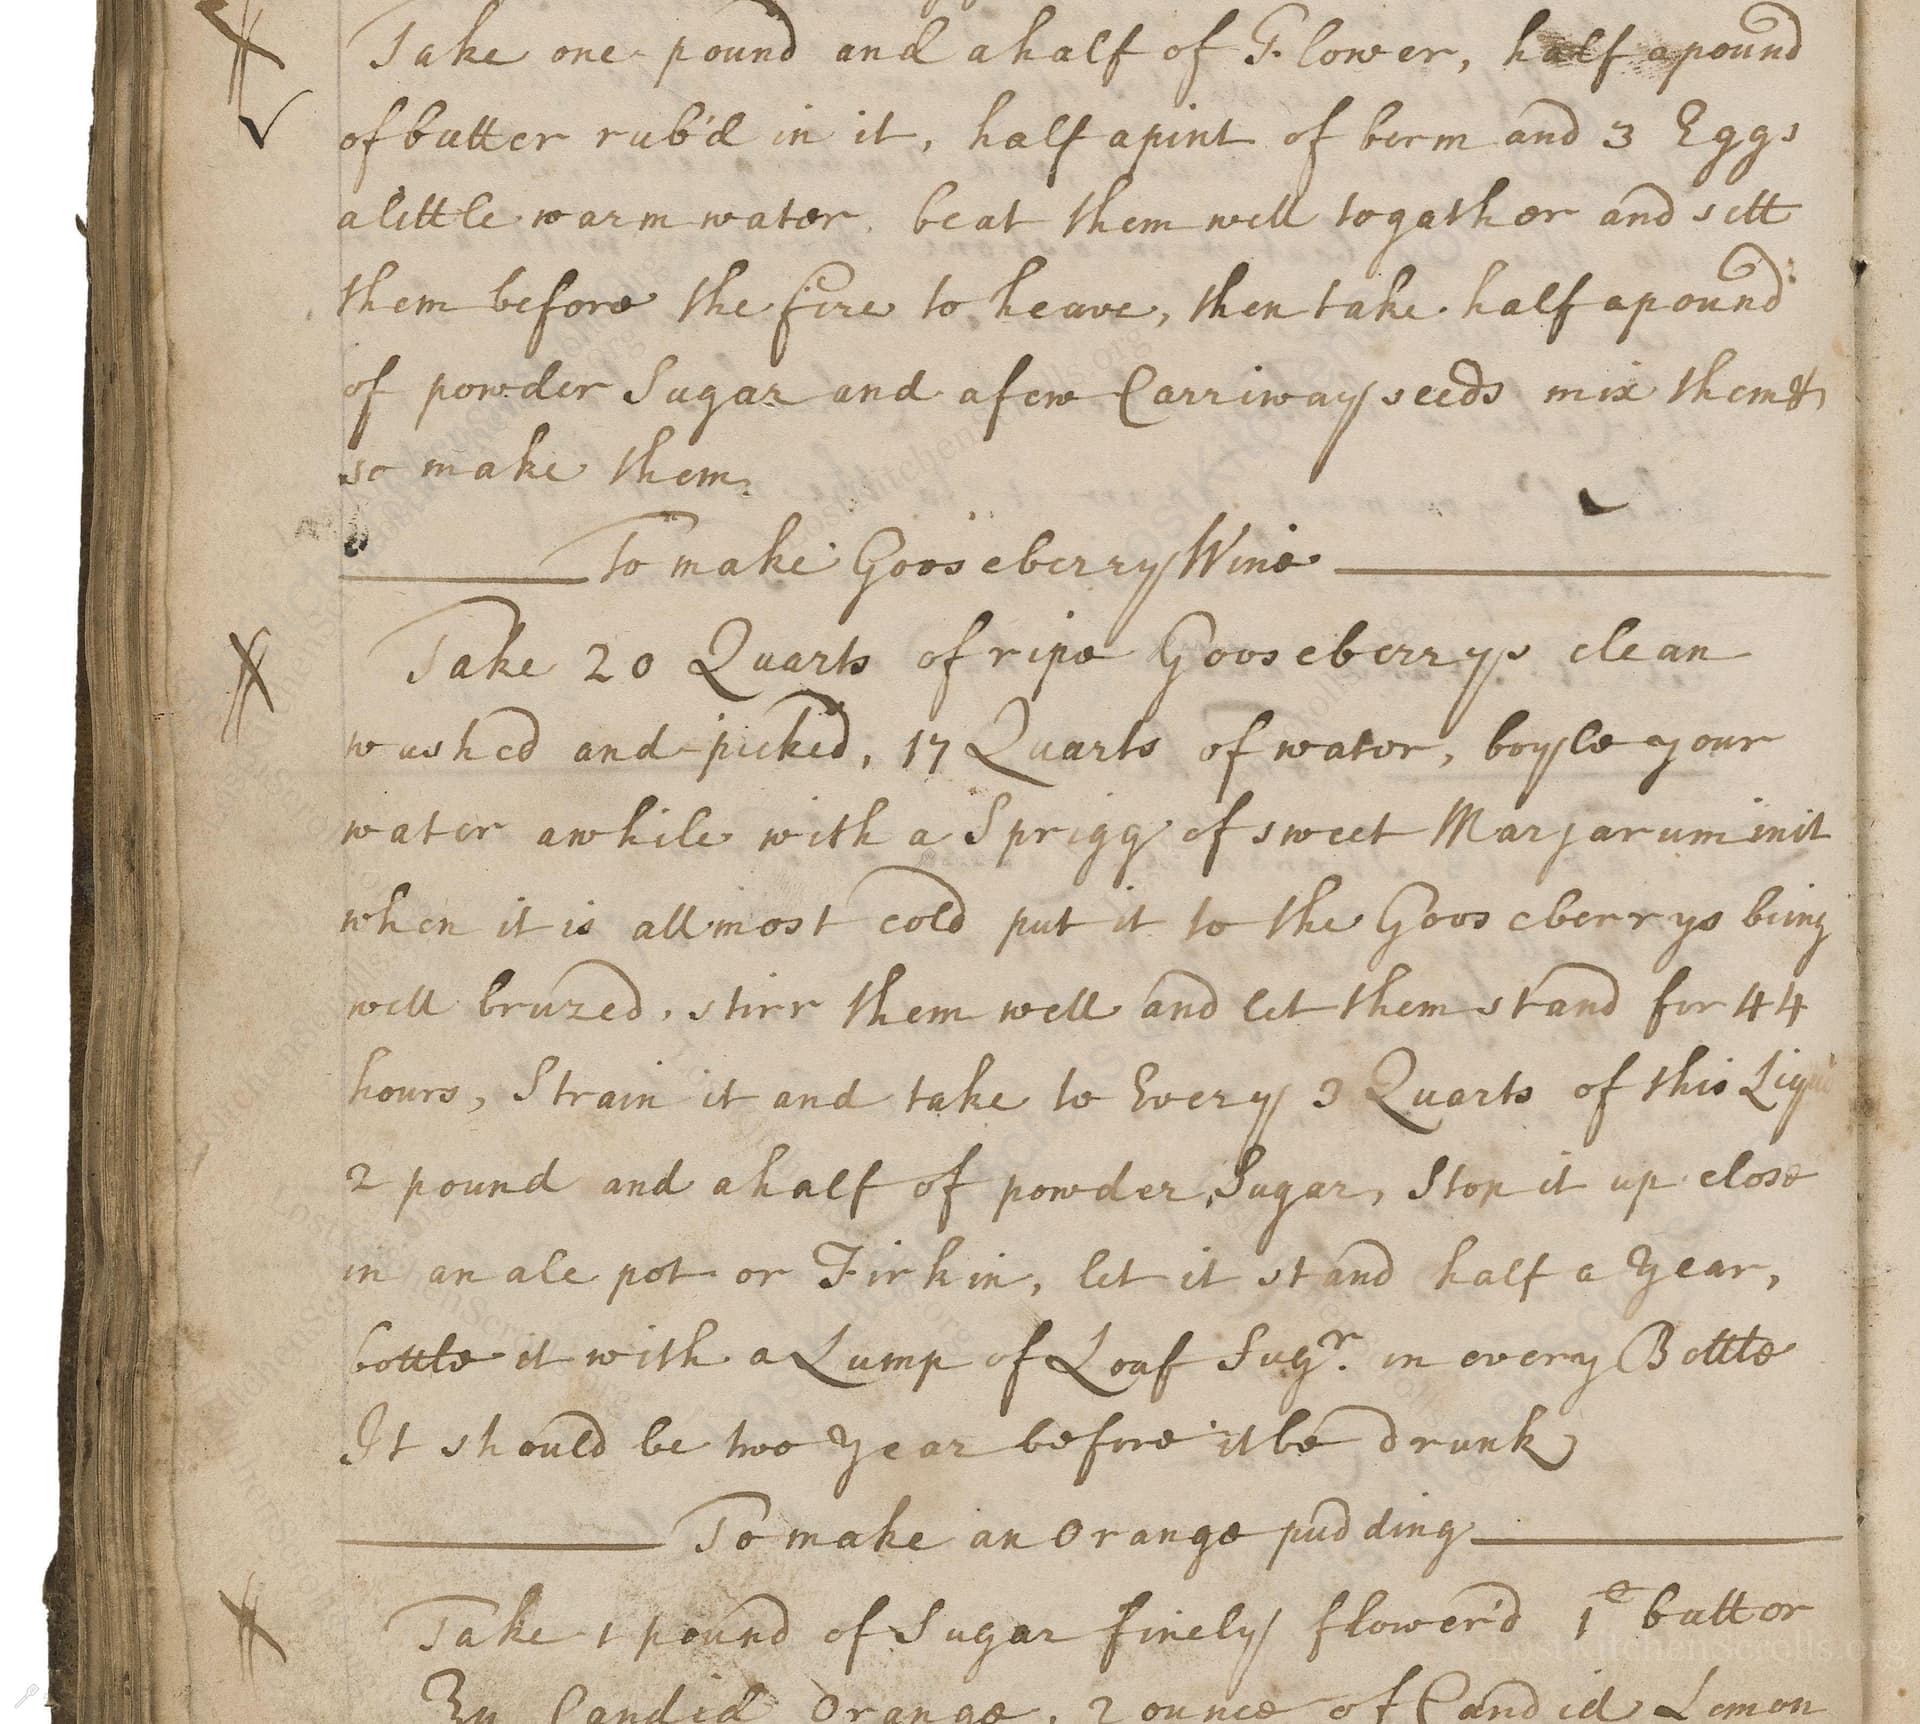 Take one pound and a half of Flower, half a pound
of butter rub'd in it, half a pint of berm and 3 Eggs
a little warm water. beat them well togather and sett
them before the fire to heave, then take half a pound
of powder Sugar and a few Carriway seeds mix them &
so make them.
To make Gooseberry Wine
Take 20 Quarts of ripe Gooseberrys clean
washed and picked, 17 Quarts of water, boyle your
water awhile with a Sprigg of sweet Marjarum in it
when it is allmost cold put it to the Gooseberrys being
well bruzed, stirr them well and let them stand for 44
hours, Strain it and take to Every 3 Quarts of this
2 pound and a half of powder Sugar, Stop it up close
in an ale pot or Firkin, let it stand half a Year,
bottle it with a Lump of Loaf Sugr. in every Bottle
It should be two Year before it be drunk
To make an Orange pudding
Take 1 pound of Sugar finely flower'd 1 buttor
Candid Orange, 2 ounce of Candid Lemon
LostKitchenScrolls.org